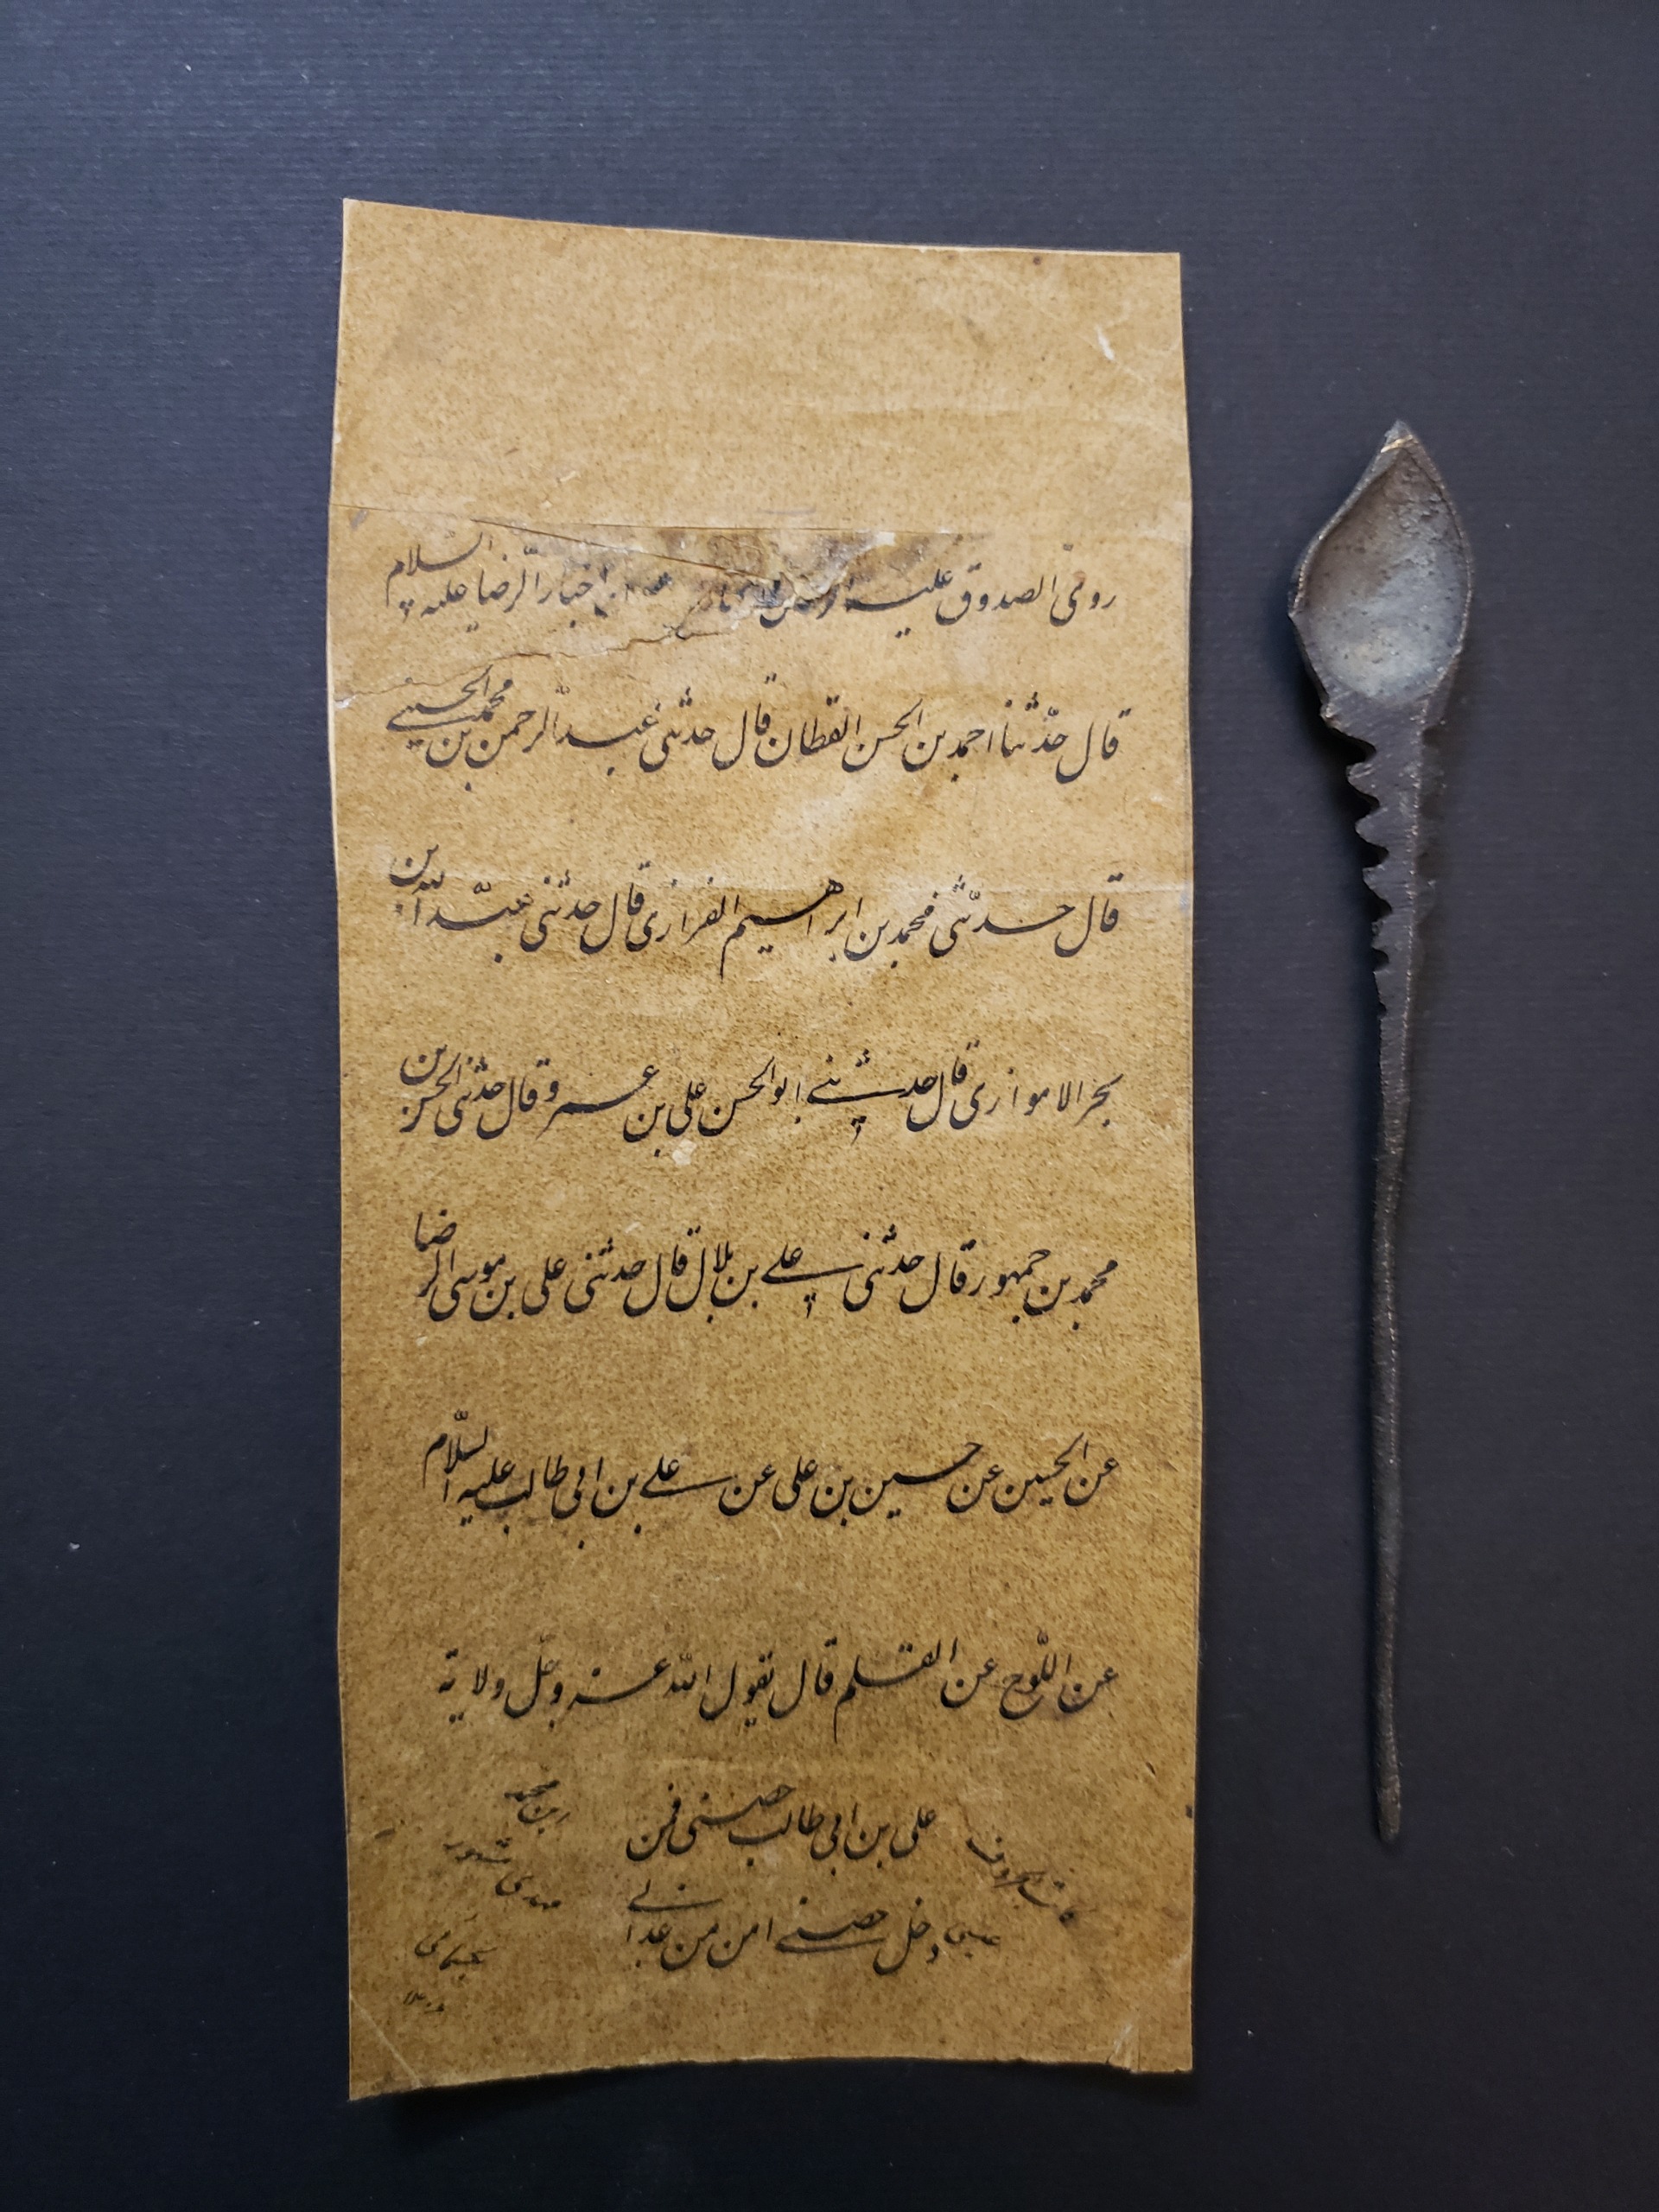 روى الصدوق عليه اخبار الرضا عليه السلام
قال حدّثنا احمد بن الحسن القطان قال حدثنى عبد الرحمن بن محمد الحسينى
قال حدّثنى محمد بن ابراهيم الفزارى قال حدثنى عبد الله بن
بحر الاهوازى قال حدثنى ابو الحسن على بن عمرو قال حدثنى الحسن بن
محمد بن جمهور قال حدثنى على بن بلال قال حدثنى على بن موسى الرضا
عن الحسين عن حسين بن على عن على بن ابى طالب عليه السلام
عن اللّوح عن القلم قال يقول الله عز وجل ولاية
على بن ابى طالب حصنى فمن
دخل حصنى امن من عذابى